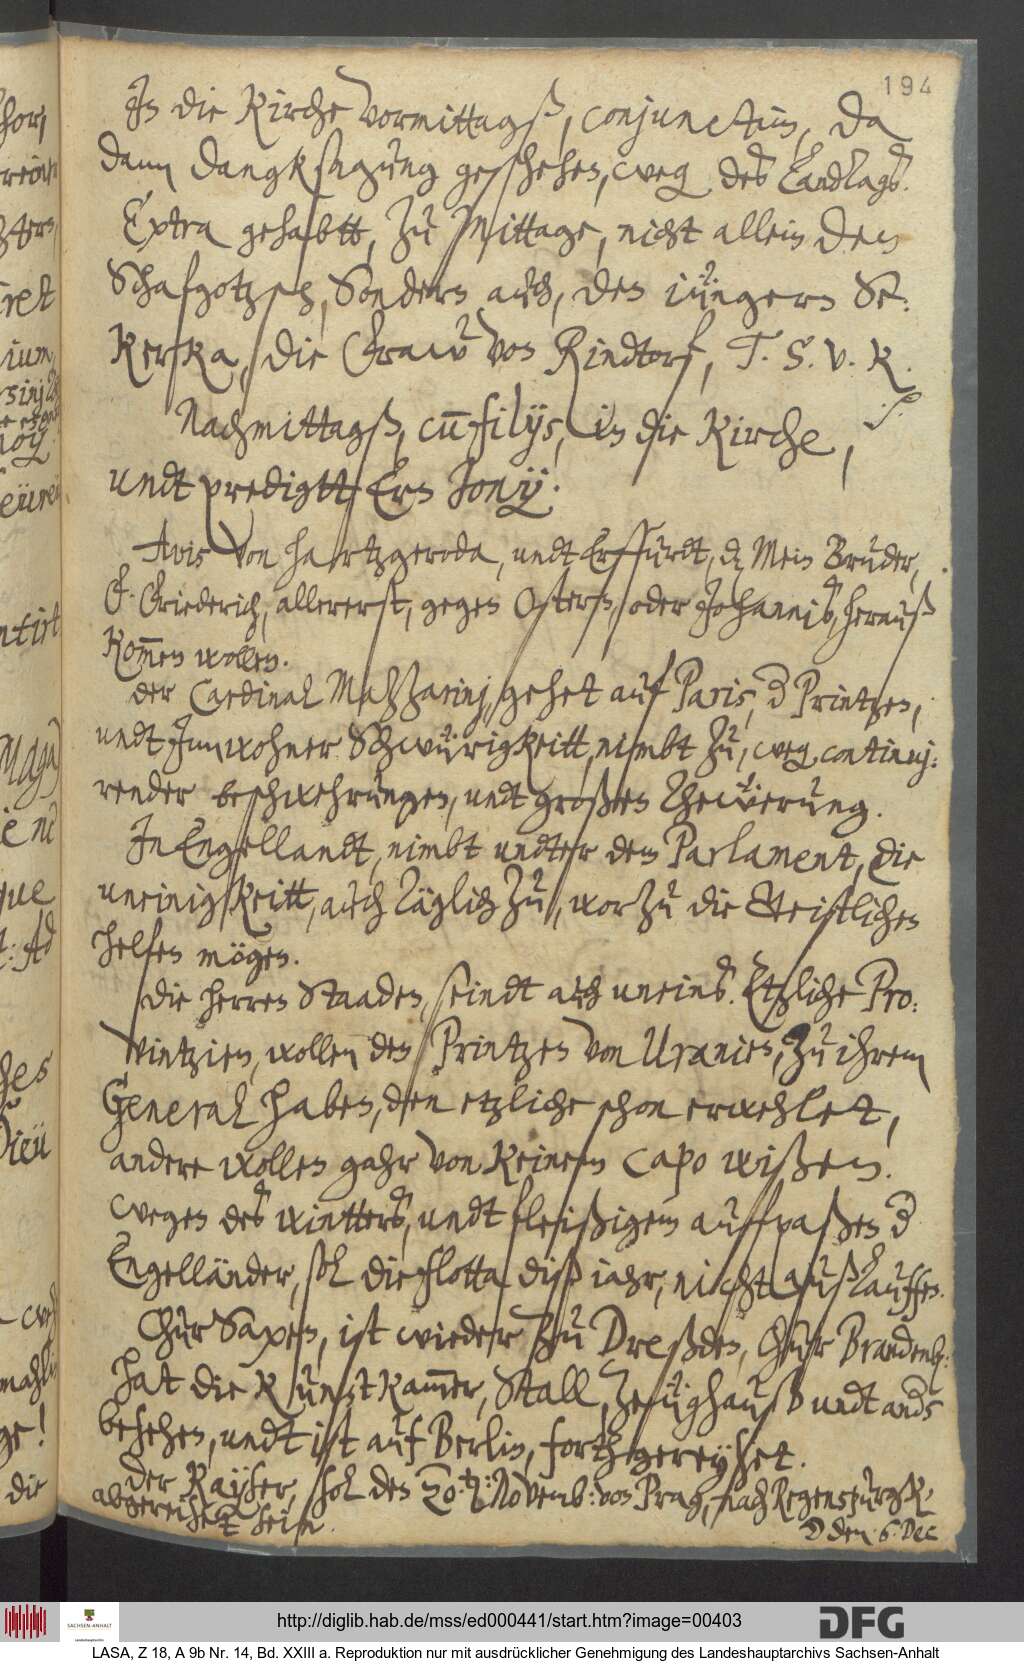 194
In die Kirche vormittagß, conjunctim, da
dann dangksagung geschehen, weg. des Landtags.
Extra gehabtt, zu Mittage, nicht allein den
Schafgotzsch, Sondern auch, den iüngern Se¬
kerka, die Fraw von Rindtorf, T. S. v. K.
Nachmittagß, cũ filijs, in die Kirche, /:
undt predigtt Ern Jonij.
Avis von Hartzgeroda, undt Erffurdt, d. Mein Bruder,
F. Friederich, allererst, gegen Ostern, oder Johannis, herauß
kom̄en wollen.
der Cardinal Mazzarinj, gehet auf Paris, d Printzen,
undt Innwohner Schwürigkeitt, nimbt zu, weg. continuj:
render beschwehrungen, undt großen Thewerung.
In Engellandt, nimbt undter dem Parlament, die
uneinigkeitt, auch Täglich zu, worzu die Geistlichen
helfen mögen.
Die Herren Staaden, seindt auch uneins. Etzliche Pro:
vintzien, wollen den Printzen von Uranien, zu ihrem
General haben, den etzliche schon erwehlet,
andere wollen gahr von keinem capo wißen.
wegen des wintters, undt fleißigem auffpaßen d
Engelländer, sol die Flotta diß iahr, nicht außlauffen.
Chur Saxen, ist wieder zu Dreßden, Chur Brandenb.:
hat die Kunstkam̄er, Stall, Zeüghauß undt ands
besehen, undt ist auf Berlin, forthgereyset.
Der Kayser, sol den 20.t: Novemb: von Prag, nach Regenspurgk
abgereiset sein.
D den. 6. Dec
http://diglib.hab.de/mss/ed000441/start.htm?image=00403
SACHSEN-ANHALT
DFG
LASA, Z 18, A 9b Nr. 14, Bd. XXIII a. Reproduktion nur mit ausdrücklicher Genehmigung des Landeshauptarchivs Sachsen-Anhalt